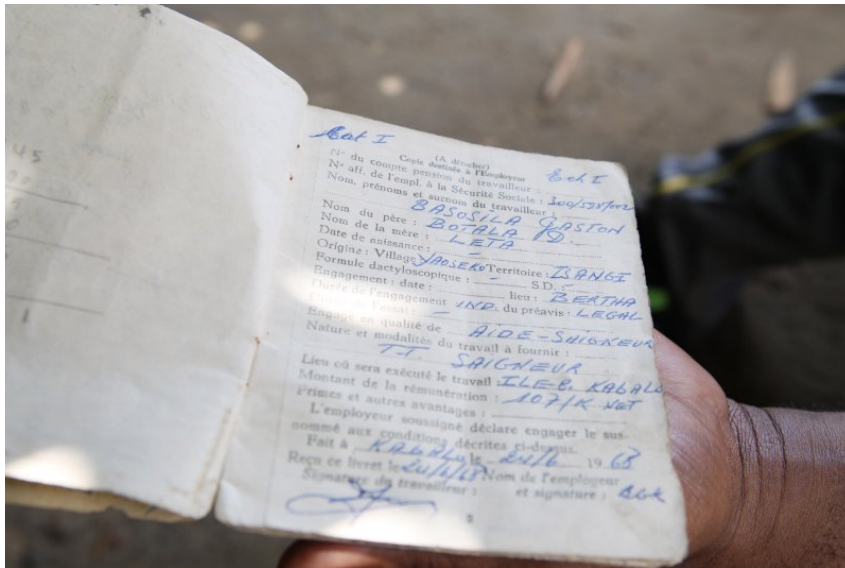 45
1
Cat I
Ech I
(A détacher)
Copie destinée à l'Employeur
N° du compte pension du travailleur :
N° aff. de l'empl. à la Sécurité Sociale :
Nom, prénoms et surnom du travailleur :
BASOSILA GASTON
Nom du père : BOTALA D.
Nom de la mère : LETA
Date de naissance : -
Origine : Village YAOSEKO Territoire : ISANGI
Formule dactyloscopique : - S.D. : -
Engagement : date : lieu : BERTHA
Durée de l'engagement IND. du préavis : LEGAL
Engagé en qualité de AIDE-SAIGNEUR
Nature et modalités du travail à fournir :
T.T SAIGNEUR
Lieu où sera exécuté le travail : ILE-B. KABALO
Montant de la rémunération : 107/K NET
Primes et autres avantages :
L'employeur soussigné déclare engager le sus-
nommé aux conditions décrites ci-dessus.
Fait à KABALO le 24/6 1968
Reçu ce livret le 24/6/68 Nom de l'employeur
Signature du travailleur : et signature :